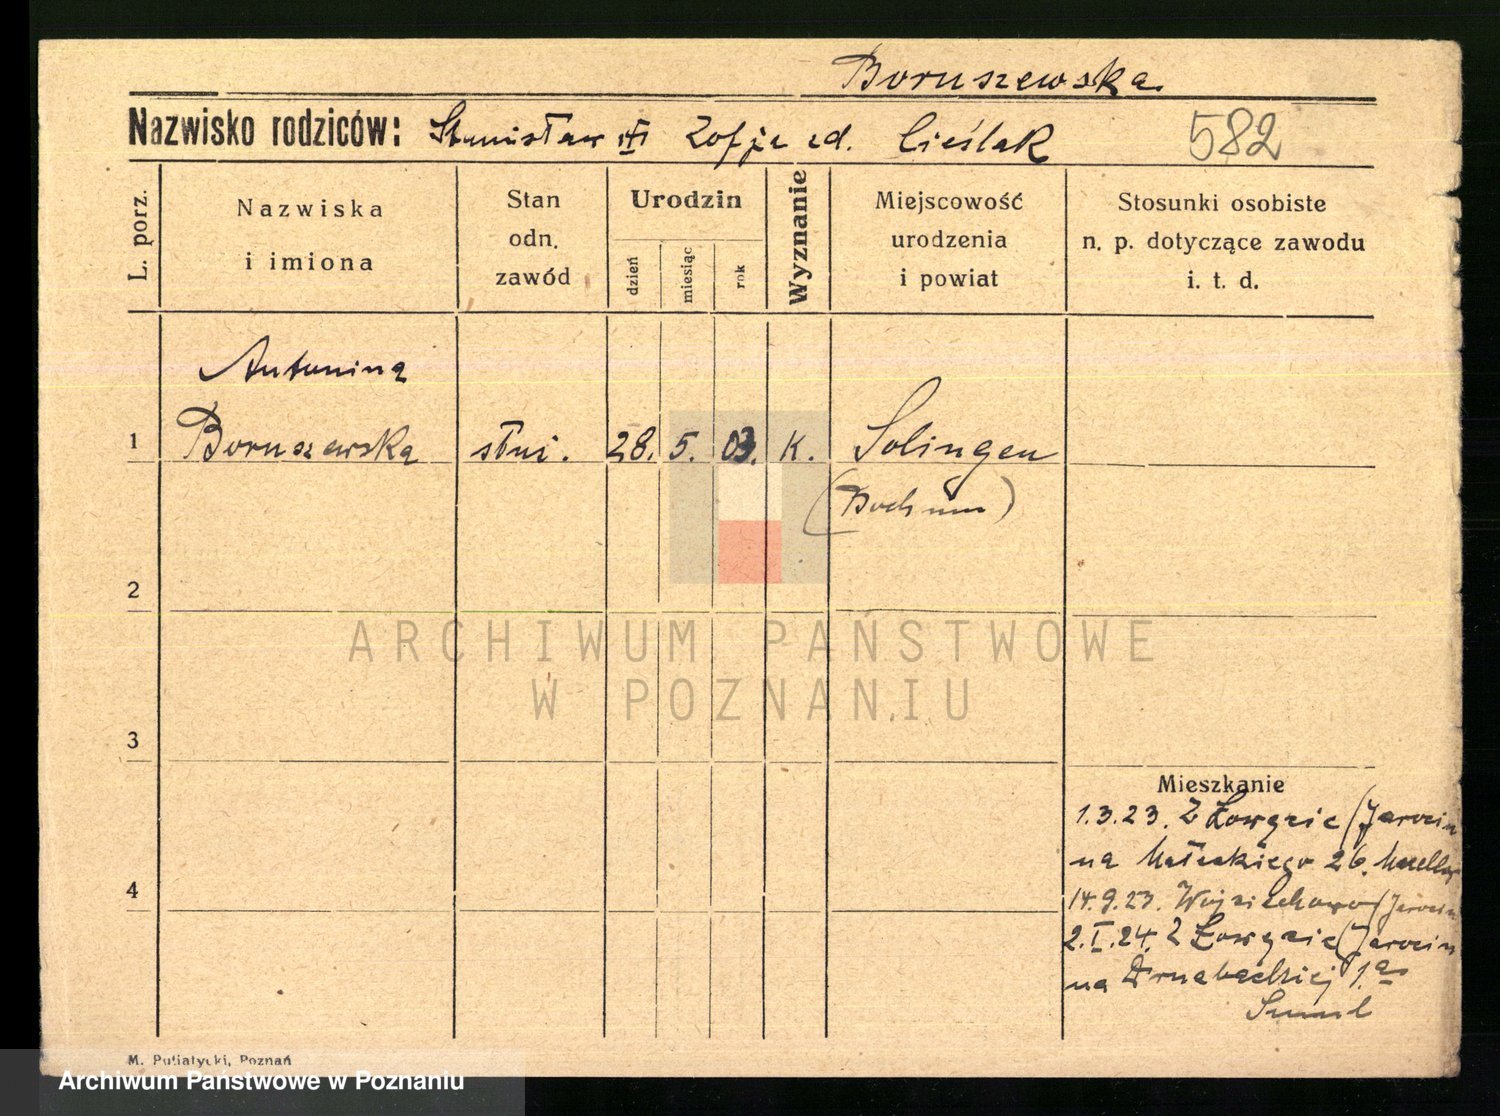 Boruszewska
Nazwisko rodziców: Stanisław Zofja zd. Cieślak 582
L. porz.
Nazwiska
i imiona
Stan
odn.
zawód
Urodzin
dzień
miesiąc
rok
Wyznanie
Miejscowość
urodzenia
i powiat
Stosunki osobiste
n. p. dotyczące zawodu
i. t. d.
Antonina
1 Boruszewska służ. 28. 5. 03. K. Solingen
(Bochum)
2
ARCHIWUM PAŃSTWOWE
W POZNANIU
3
Mieszkanie
1.3.23. Z Łowęcic (Jarocin
na Małeckiego 26.
4
14.9.23. Wojciechowo (Jarocin
2.I.24. Z Łowęcic (Jarocin
na 1.
M. Putiatycki, Poznań
Archiwum Państwowe w Poznaniu